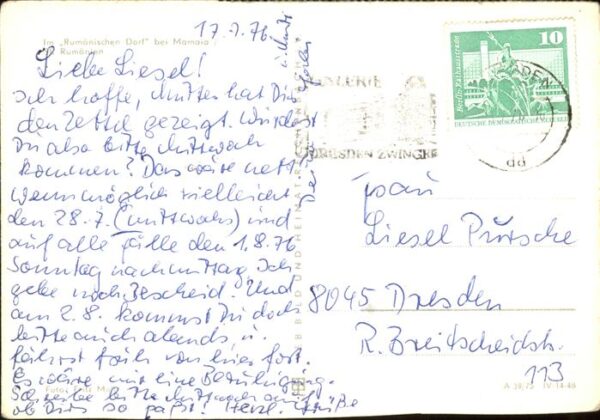 17.7.76
Im „Rumänischen Dorf" bei Mamaia /
Rumänien
Liebe Liesel!
Ich hoffe, Mutter hat Dir
den Zettel gezeigt. Würdest
Du also bitte Mittwoch
kommen? Das wäre nett
wenn möglich vielleicht
den 28.7. (mittwochs) und
auf alle Fälle den 1.8.76
Sonntag nachmittag. Ich
gebe noch Bescheid. Und
am 2.8. kommst Du doch
bitte auch abends, u.
fährst früh von hier fort.
Es wäre mir eine Beruhigung.
Schreibe bitte Mittwoch
ob Dir's so paßt! Herzl. Grüße
DRESDEN ZWINGER
10
DEUTSCHE DEMOKRATISCHE REPUBLIK
Frau
Liesel Pürsche
8045 Dresden
R. Breitscheidstr.
113
BILD UND HEIMAT
A 39/75 IV-14-46